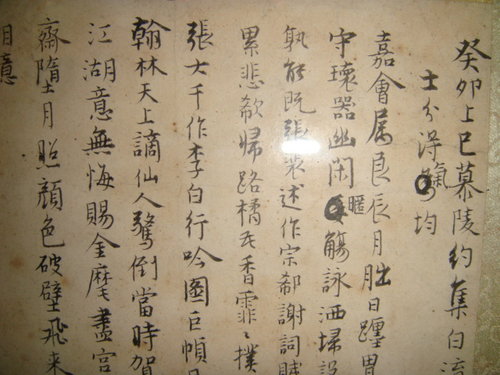 癸卯上巳慕陵約集白流
士分得均
嘉會属良辰月朏日躔胃
守壞器幽闲暱觴詠洒埽設
孰能既張裝述作宗郗謝詞賦
累悲欷歸路橘花香霏〻撲
張大千作李白行吟圖巨幀
翰林天上謫仙人驚倒當時賀
江湖意無悔賜金麾盡宮
齋墮月照顏色破壁飛来
月意